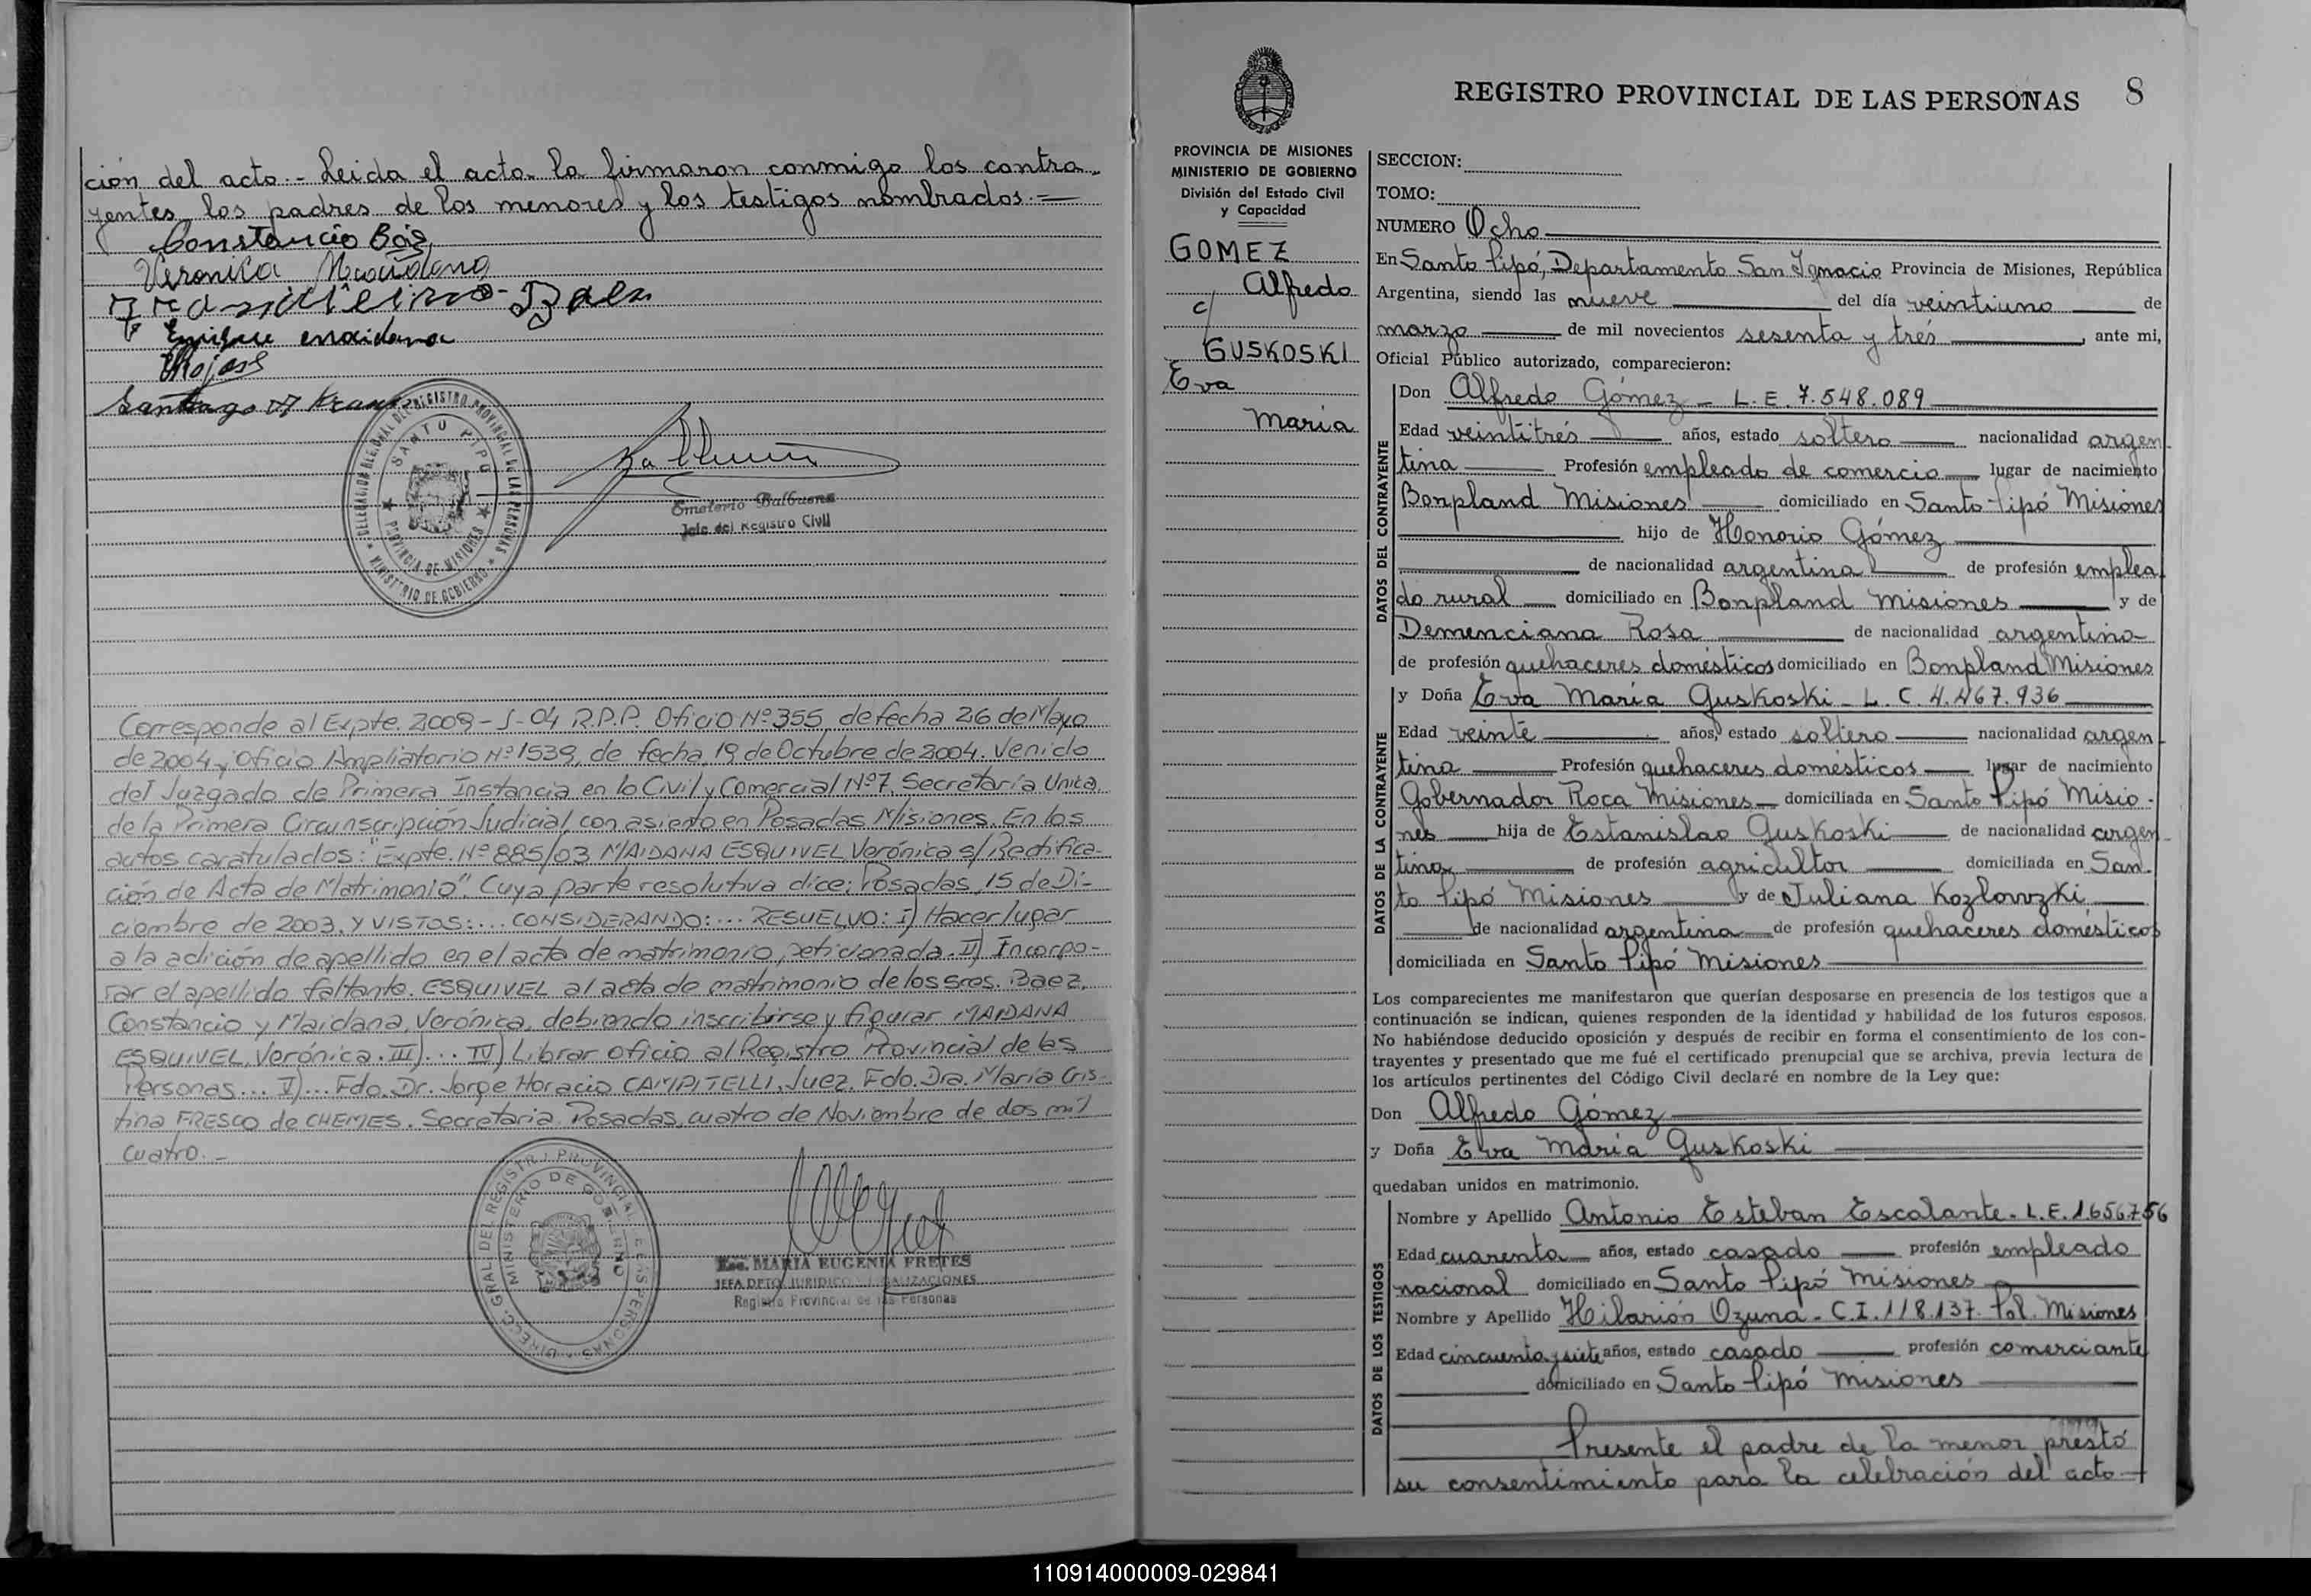 ción del acto.- Leida el acta la firmaron conmigo los contra-
yentes los padres de los menores y los testigos nombrados.=
Constancio Báez
Veronica Maidana
Baez
Enrique maidana
Rojas
Santiago A Kraus
DELEGACION REGIONAL DEL REGISTRO PROVINCIAL DE LAS PERSONAS
MINISTERIO DE GOBIERNO
SANTO PIPO
PROVINCIA DE MISIONES
Emeterio Balbuena
Jefe del Registro Civil
Corresponde al Expte. 2009-J-04 R.P.P. Oficio Nº 355, de fecha 26 de Mayo
de 2004 y Oficio Ampliatorio Nº 1539, de fecha 19 de Octubre de 2004. Venido
del Juzgado de Primera Instancia en lo Civil y Comercial Nº 7. Secretaría Unica,
de la Primera Circunscripción Judicial, con asiento en Posadas, Misiones. En los
autos caratulados: "Expte. Nº 885/03 MAIDANA ESQUIVEL Verónica s/ Rectifica-
ción de Acta de Matrimonio". Cuya parte resolutiva dice: Posadas, 15 de Di-
ciembre de 2003. Y VISTOS:... CONSIDERANDO:... RESUELVO: I) Hacer lugar
a la adición de apellido en el acta de matrimonio peticionada. II) Incorpo-
rar el apellido faltante. ESQUIVEL al acta de matrimonio de los sres. Baez,
Constancio y Maidana, Verónica, debiendo inscribirse y figurar MAIDANA
ESQUIVEL, Verónica. III)... IV) Librar oficio al Registro Provincial de las
Personas... V)... Fdo. Dr. Jorge Horacio CAMPITELLI, Juez. Fdo. Dra. María Cris-
tina FRESCO de CHEMES. Secretaria. Posadas, cuatro de Noviembre de dos mil
cuatro.-
DIRECC. GRAL. DEL REGISTRO PROVINCIAL DE LAS PERSONAS
MINISTERIO DE GOBIERNO
Esc. MARIA EUGENIA FRETES
JEFA DPTO. JURIDICO
Registro Provincial de las Personas
REGISTRO PROVINCIAL DE LAS PERSONAS 8
PROVINCIA DE MISIONES
MINISTERIO DE GOBIERNO
División del Estado Civil
y Capacidad
GOMEZ
Alfredo
c/
GUSKOSKI
Eva
María
SECCION:
TOMO:
NUMERO Ocho
En Santo Pipó, Departamento San Ignacio Provincia de Misiones, República
Argentina, siendo las nueve del día veintiuno de
marzo de mil novecientos sesenta y tres, ante mi,
Oficial Público autorizado, comparecieron:
DATOS DEL CONTRAYENTE
Don Alfredo Gómez - L.E. 7.548.089
Edad veintitrés años, estado soltero nacionalidad argen
tina Profesión empleado de comercio lugar de nacimiento
Bonpland Misiones domiciliado en Santo Pipó Misiones
hijo de Honorio Gómez
de nacionalidad argentina de profesión emplea
do rural domiciliado en Bonpland Misiones y de
Demenciana Rosa de nacionalidad argentina
de profesión quehaceres domésticos domiciliado en Bonpland Misiones
DATOS DE LA CONTRAYENTE
y Doña Eva María Guskoski - L.C. 4.467.936
Edad veinte años, estado soltera nacionalidad argen
tina Profesión quehaceres domésticos lugar de nacimiento
Gobernador Roca Misiones domiciliada en Santo Pipó Misio-
nes hija de Estanislao Guskoski de nacionalidad argen
tina de profesión agricultor domiciliada en San-
to Pipó Misiones y de Juliana Kozlowzki
de nacionalidad argentina de profesión quehaceres domésticos
domiciliada en Santo Pipó Misiones
Los comparecientes me manifestaron que querían desposarse en presencia de los testigos que a
continuación se indican, quienes responden de la identidad y habilidad de los futuros esposos.
No habiéndose deducido oposición y después de recibir en forma el consentimiento de los con-
trayentes y presentado que me fué el certificado prenupcial que se archiva, previa lectura de
los artículos pertinentes del Código Civil declaré en nombre de la Ley que:
Don Alfredo Gómez
y Doña Eva María Guskoski
quedaban unidos en matrimonio.
DATOS DE LOS TESTIGOS
Nombre y Apellido Antonio Esteban Escalante - L.E. 1.656.756
Edad cuarenta años, estado casado profesión empleado
nacional domiciliado en Santo Pipó Misiones
Nombre y Apellido Hilarión Ozuna - C.I. 118.137. Pol. Misiones
Edad cincuenta y siete años, estado casado profesión comerciante
domiciliado en Santo Pipó Misiones
Presente el padre de la menor prestó
su consentimiento para la celebración del acto
110914000009-029841